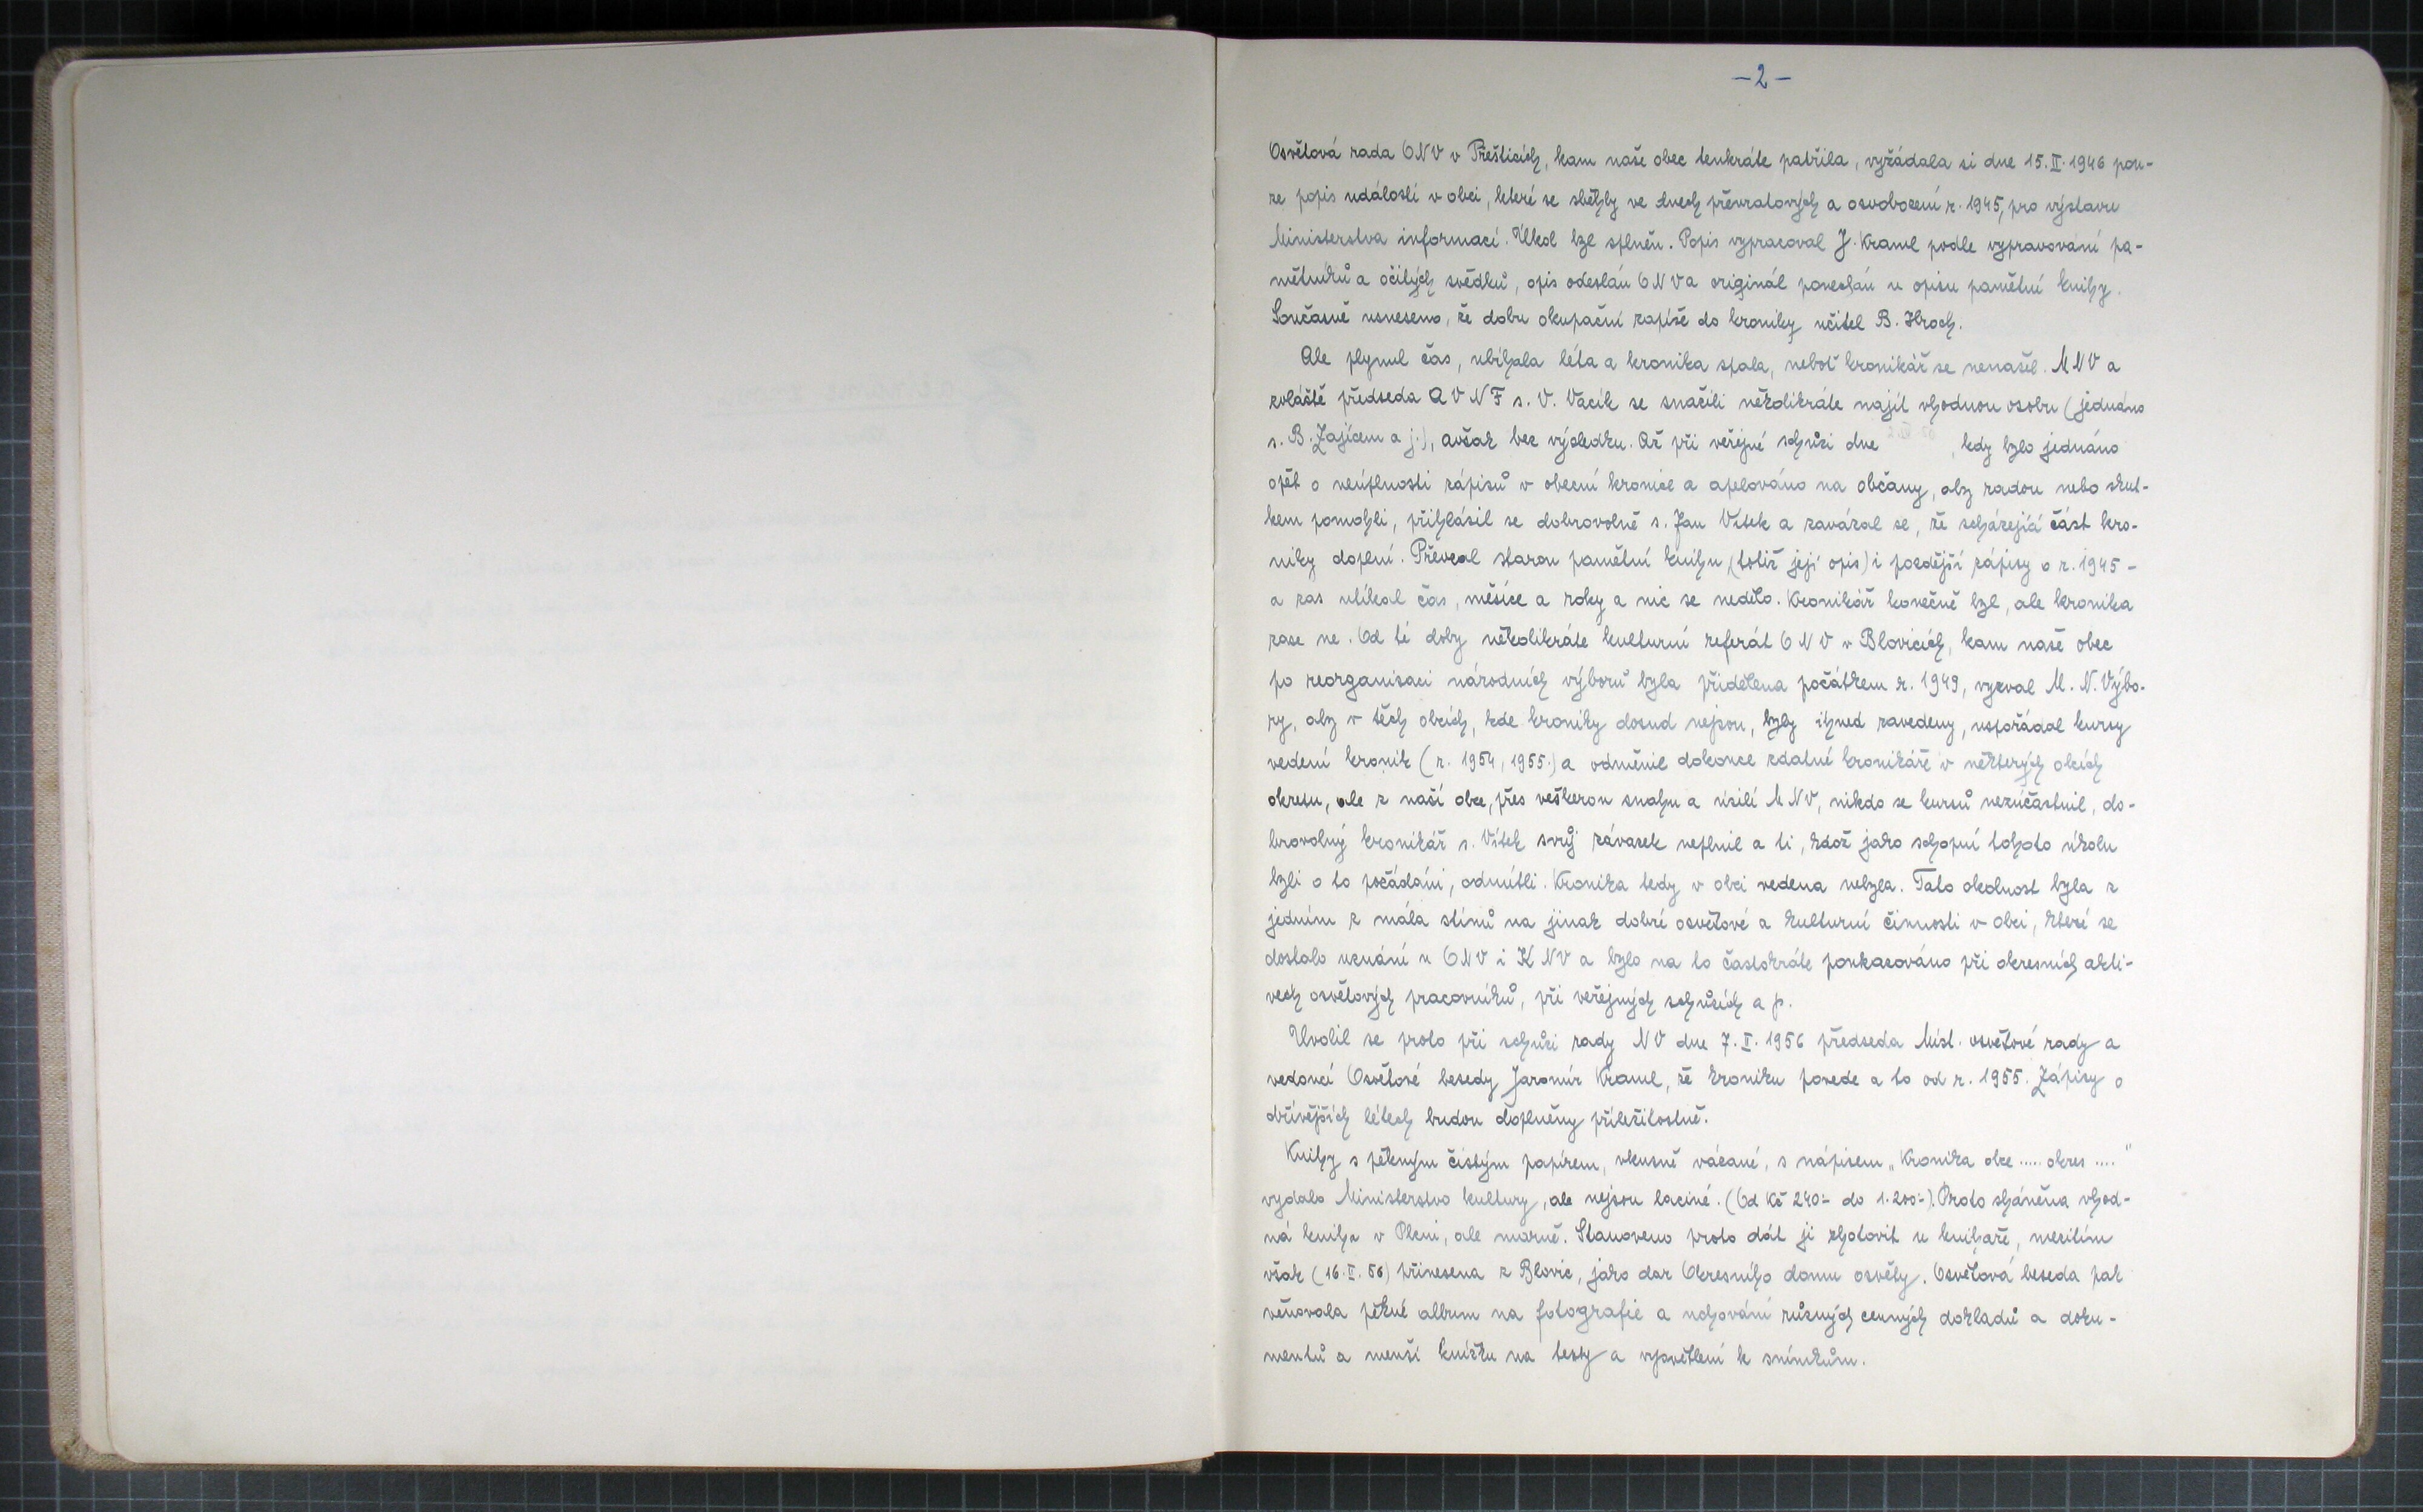 -2-
Osvětová rada ONV v Přešticích, kam naše obec tenkráte patřila, vyžádala si dne 15.II.1946 pou-
ze popis událostí v obci, které se zběhly ve dnech převratových a osvobození r. 1945, pro výstavu
Ministerstva informací. Úkol byl splněn. Popis vypracoval J. Kraml podle vypravování pa-
mětníků a očitých svědků, opis odeslán ONV a originál ponechán u opisu pamětní knihy.
Současně usneseno, že dobu okupační zapíše do kroniky učitel B. Hroch.
Ale plynul čas, ubíhala léta a kronika spala, neboť kronikář se nenašel. MNV a
zvláště předseda AVNF s. V. Vacík se snažili několikráte najít vhodnou osobu (jednáno
s. B. Zajícem a j.), avšak bez výsledku. Až při veřejné schůzi dne , kdy bylo jednáno
opět o neúplnosti zápisů v obecní kronice a apelováno na občany, aby radou nebo skut-
kem pomohli, přihlásil se dobrovolně s. Jan Vítek a zavázal se, že scházející část kro-
niky doplní. Převzal starou pamětní knihu (totiž její opis) i pozdější zápisy o r. 1945 -
a zas utíkal čas, měsíce a roky a nic se nedělo. Kronikář konečně byl, ale kronika
zase ne. Od té doby několikráte kulturní referát ONV v Blovicích, kam naše obec
po reorganisaci národních výborů byla přidělena počátkem r. 1949, vyzval M. N. Výbo-
ry, aby v těch obcích, kde kroniky dosud nejsou, byly ihned zavedeny, uspořádal kursy
vedení kronik (r. 1954, 1955.) a odměnil dokonce zdatné kronikáře v některých obcích
okresu, ale z naší obce, přes veškerou snahu a úsilí MNV, nikdo se kursů nezúčastnil, do-
brovolný kronikář s. Vítek svůj závazek neplnil a ti, kdož jako schopní tohoto úkolu
byli o to požádáni, odmítli. Kronika tedy v obci vedena nebyla. Tato okolnost byla z
jedním z mála stínů na jinak dobré osvětové a kulturní činnosti v obci, které se
dostalo uznání u ONV i KNV a bylo na to častokráte poukazováno při okresních akti-
vech osvětových pracovníků, při veřejných schůzích a p.
Uvolil se proto při schůzi rady NV dne 7.I.1956 předseda Míst. osvětové rady a
vedoucí Osvětové besedy Jaromír Kraml, že kroniku povede a to od r. 1955. Zápisy o
dřívějších létech budou doplněny příležitostně.
Knihy s pěkným čistým papírem, vkusně vázané, s nápisem „Kronika obce ..... okres ...."
vydalo Ministerstvo kultury, ale nejsou laciné. (Od Kč 240.- do 1.200.-). Proto sháněna vhod-
ná kniha v Plzni, ale marně. Stanoveno proto dát ji zhotovit u knihaře, mezitím
však (16.I.56) přinesena z Blovic, jako dar Okresního domu osvěty. Osvětová beseda pak
věnovala pěkné album na fotografie a uchování různých cenných dokladů a doku-
mentů a menší knížku na texty a vysvětlení k snímkům.